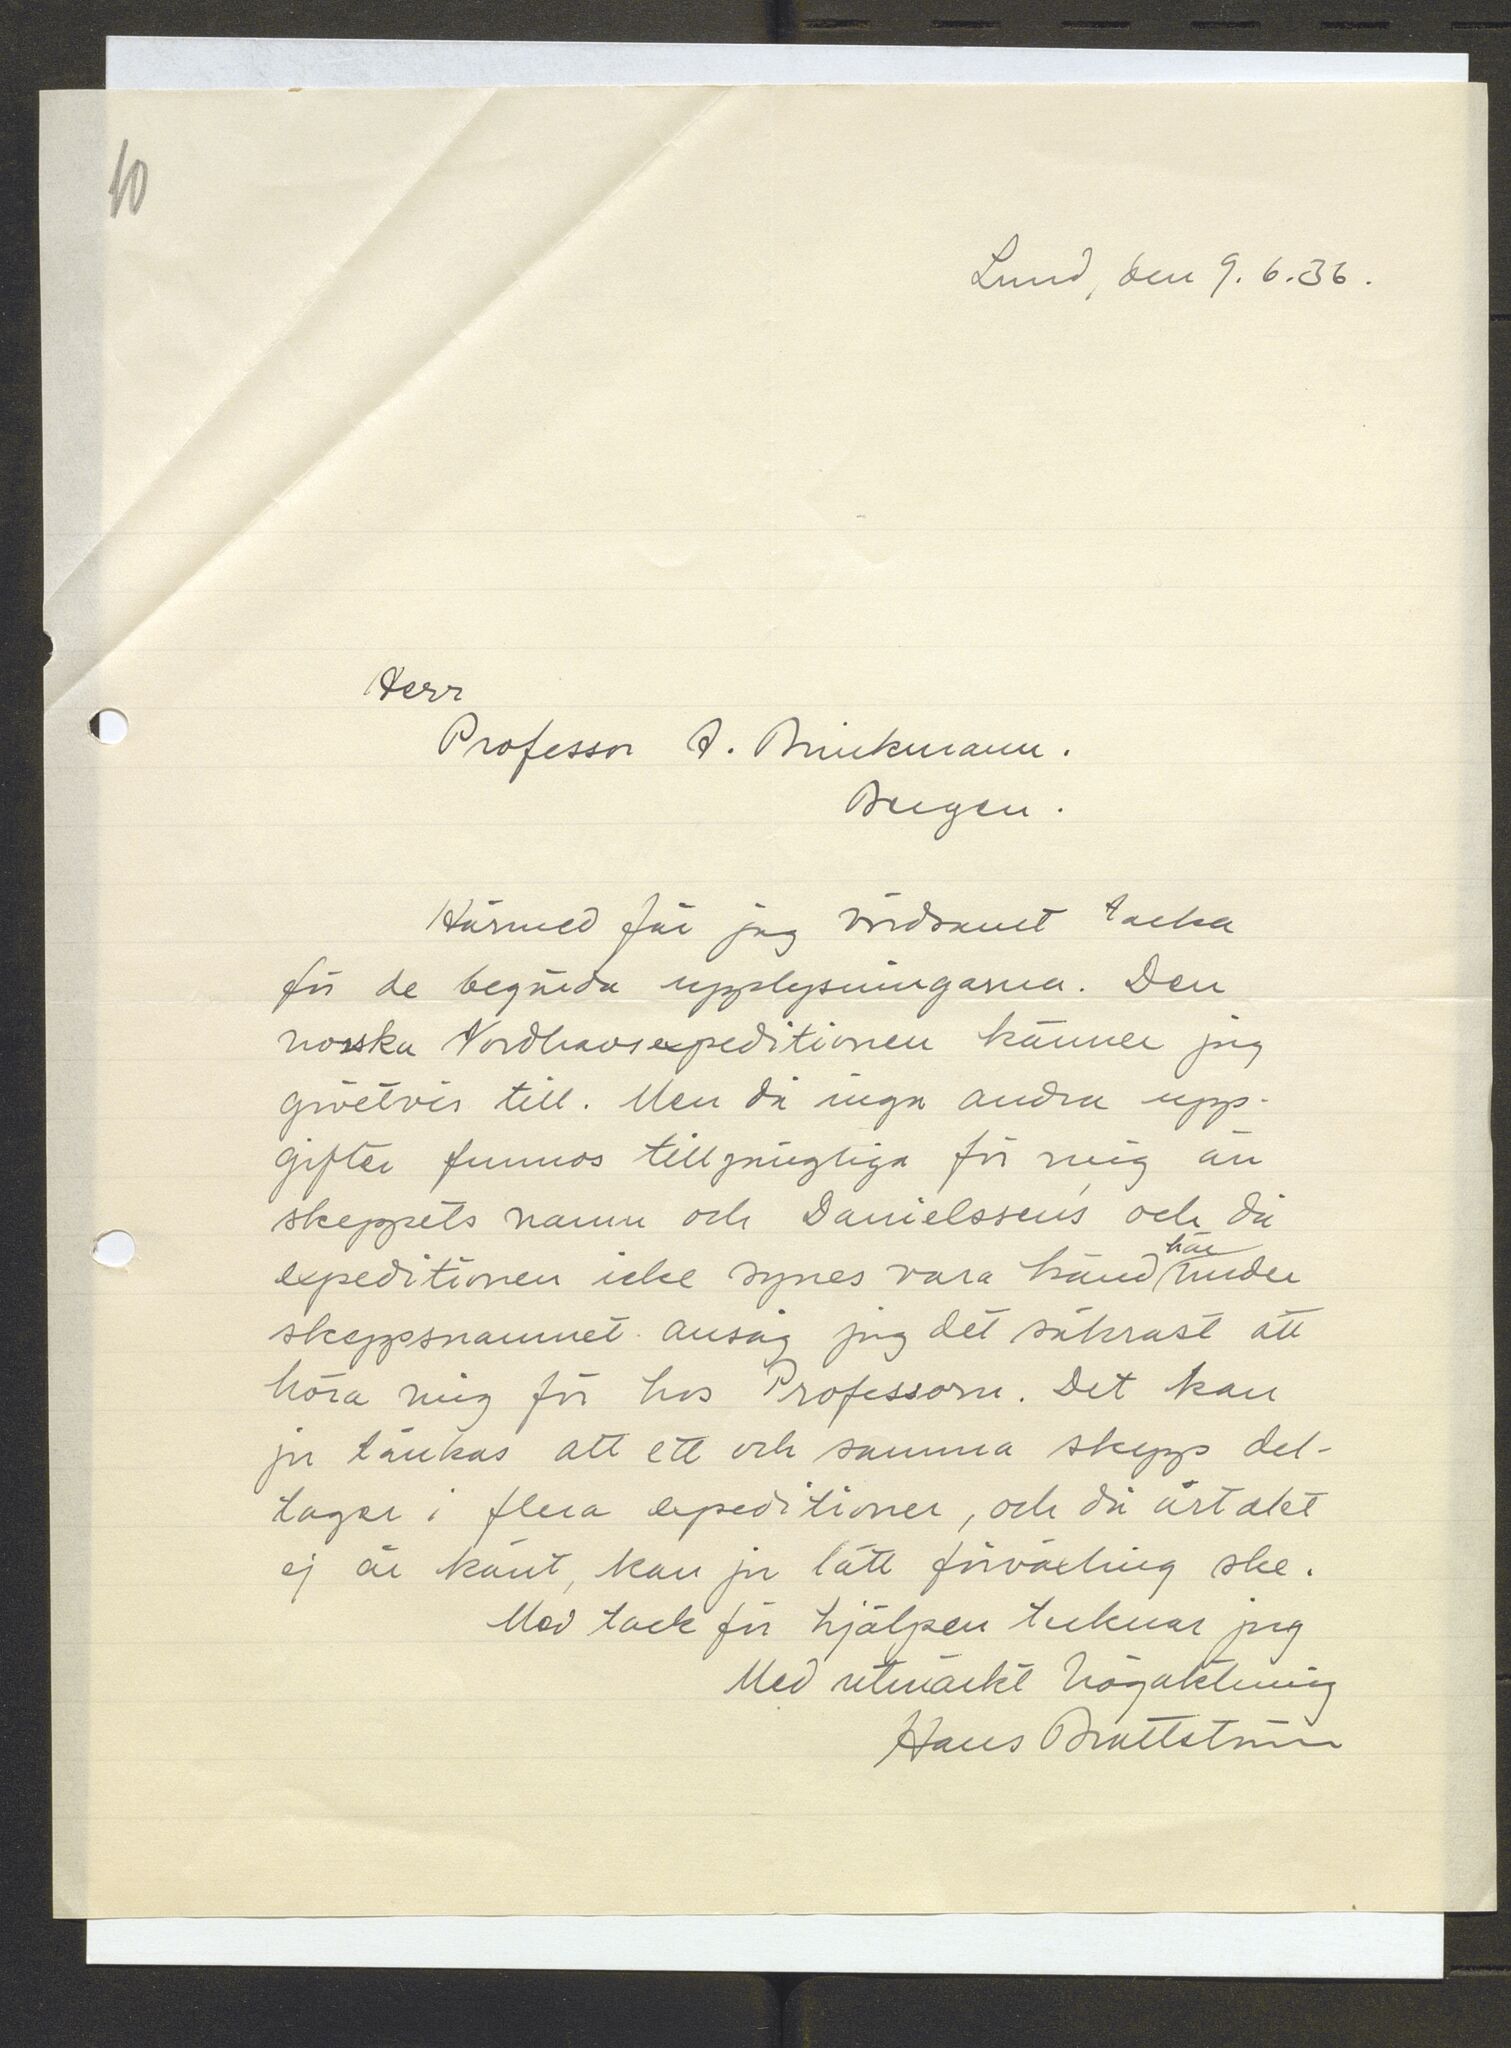 10
Lund, den 9.6.36.
Herr
Professor A. Brinkmann.
Bergen.
Härmed får jag vördsamt tacka
för de begärda upplysningarna. Den
norska Nordhavsexpeditionen känner jag
givetvis till. Men då inga andra upp-
gifter funnos tillgängliga för mig än
skeppets namn och Danielssens, och då
här
expeditionen icke synes vara känd under
skeppsnamnet ansåg jag det säkrast att
höra mig för hos Professorn. Det kan
ju tänkas att ett och samma skepp del-
tager i flera expeditioner, och då årtalet
ej är känt, kan ju lätt förväxling ske.
Med tack för hjälpen tecknar jag
Med utmärkt högaktning
Hans Brattström